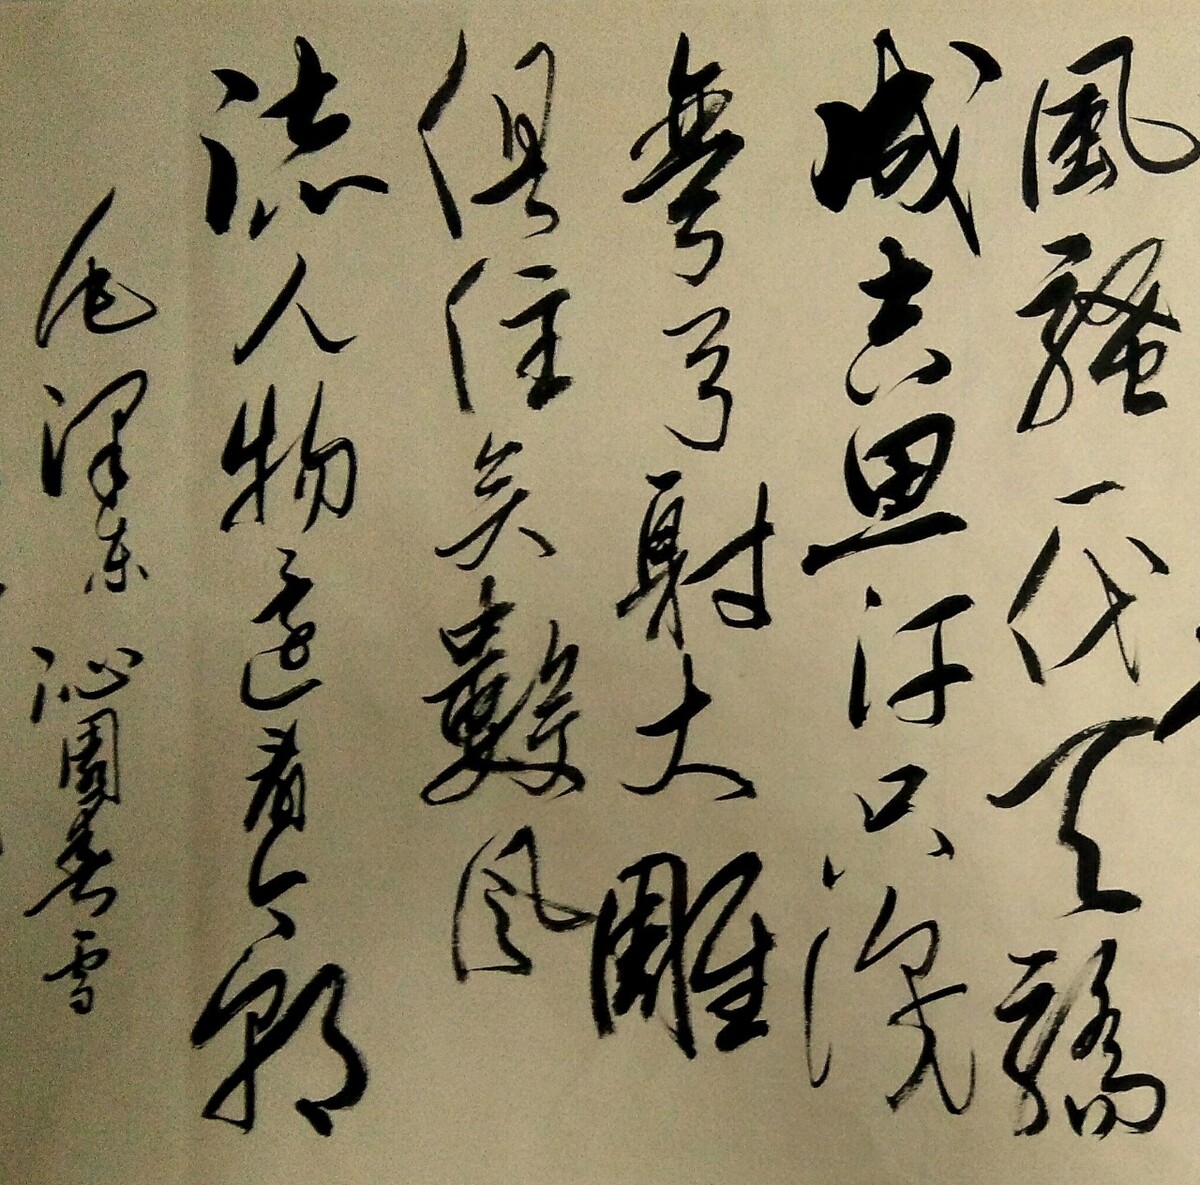 風騷一代天驕
成吉思汗只識
彎弓射大雕
俱往矣數風
流人物還看今朝
毛澤东 沁園春雪